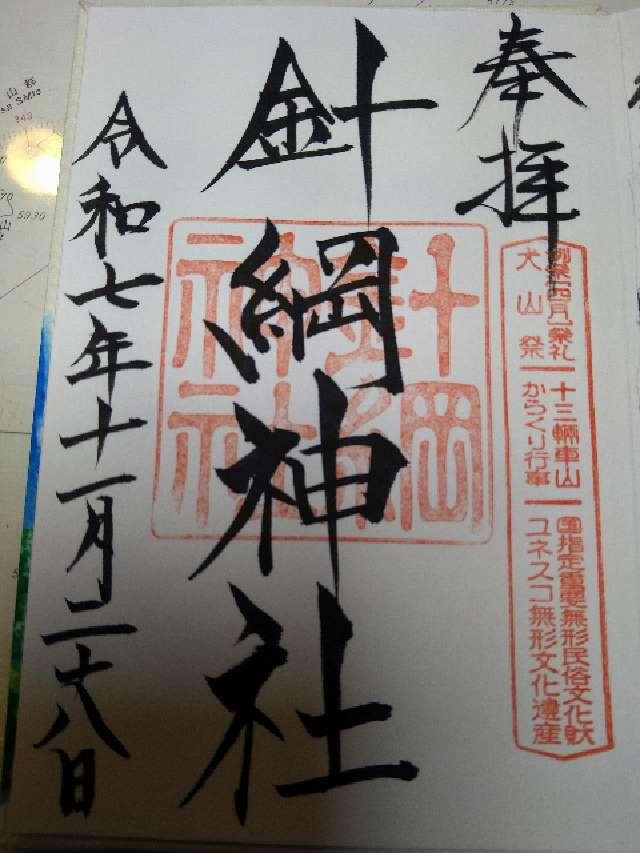 奉拝
例祭(四月)祭礼 十三輛車山 国指定重要無形民俗文化財
犬山祭 からくり行事 ユネスコ無形文化遺産
針綱神社
針綱神社
令和七年十一月二十八日
5930